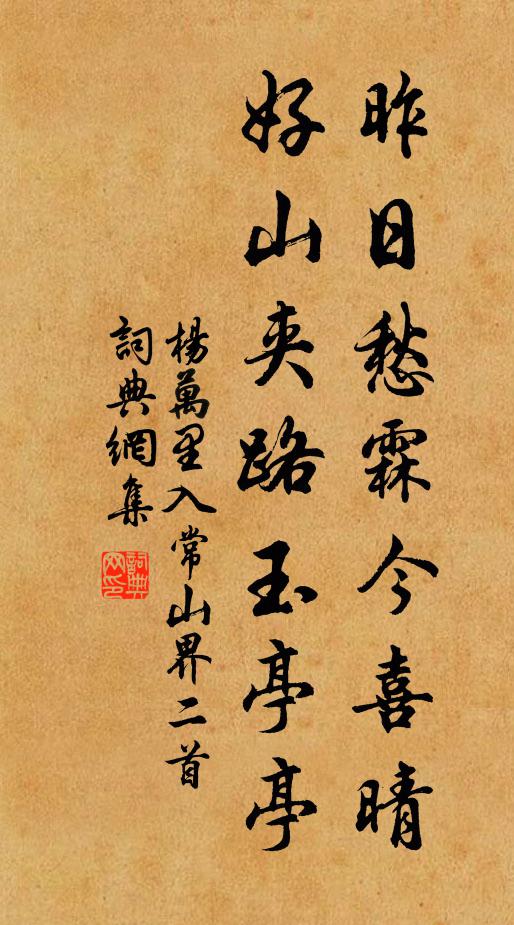 昨日愁霖今喜晴
好山夾路玉亭亭
楊萬里入常山界二首
詞典網集
詞典
网印